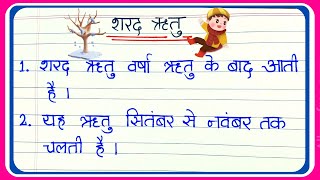 शरद ऋतु
1. शरद ऋतु वर्षा ऋतु के बाद आती
है।
2. यह ऋतु सितंबर से नवंबर तक
चलती है।